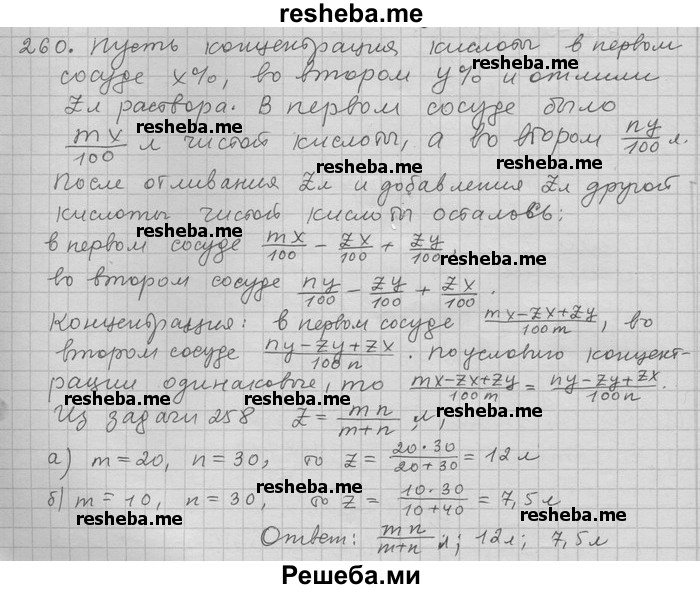 resheba.me
260. Пусть концентрация кислоты в первом
сосуде x%, во втором y% и отлили
resheba.me resheba.me
z л раствора. В первом сосуде было
mx/100 л чистой кислоты, а во втором ny/100 л.
resheba.me resheba.me
После отливания z л и добавления z л другой
кислоты чистой кислоты осталось:
в первом сосуде mx/100 - zx/100 + zy/100,
resheba.me resheba.me
во втором сосуде ny/100 - zy/100 + zx/100.
Концентрация: в первом сосуде mx-zx+zy/100m, во
resheba.me resheba.me
втором сосуде ny-zy+zx/100n. по условию концент-
рации одинаковые, то mx-zx+zy/100m = ny-zy+zx/100n.
resheba.me resheba.me
Из задачи 258 z = mn/m+n л,
а) m = 20, n = 30, то z = 20·30/20+30 = 12 л
б) m = 10, n = 30, то z = 10·30/10+40 = 7,5 л
resheba.me resheba.me
resheba.me resheba.me
Ответ: mn/m+n л; 12 л; 7,5 л
Решеба.ми